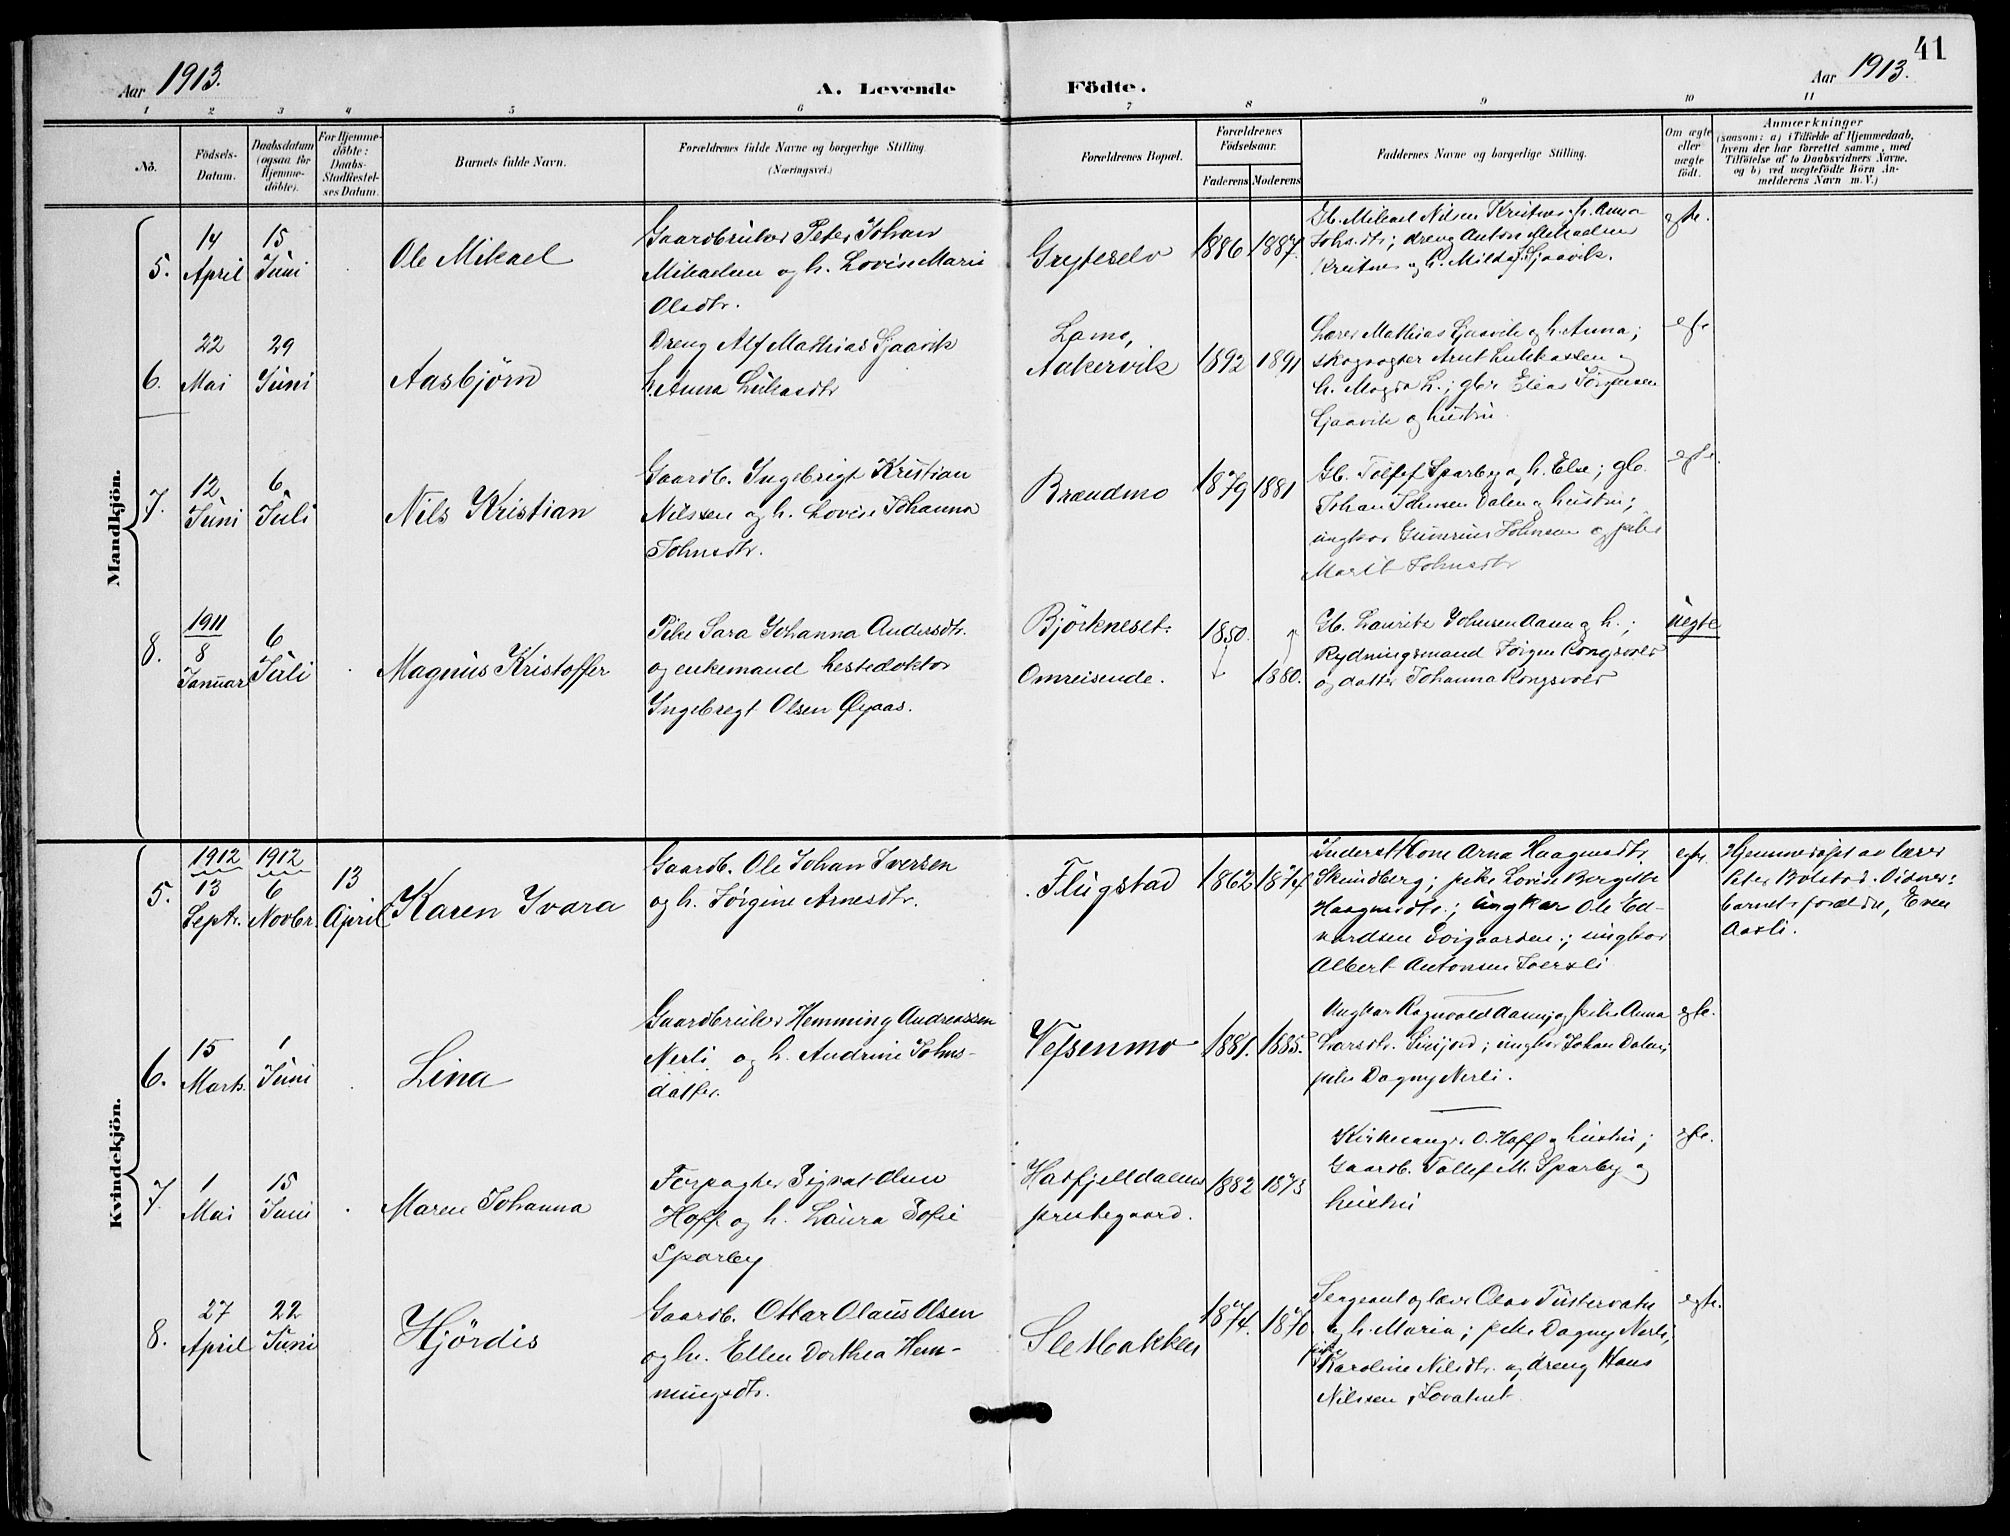 41
Aar 1913.
A. Levende Födte.
Aar 1913.
1 2 3 4 5 6 7 8 9 10 11
No.
Födsels-
Datum.
Daabsdatum
(ogsaa for
Hjemme-
döbte).
For Hjemme-
döbte:
Daabs-
Stadfæstel-
ses Datum.
Barnets fulde Navn.
Forældrenes fulde Navne og borgerlige Stilling.
(Næringsvei.)
Forældrenes Bopæl.
Forældrenes
Födselsaar.
Faderens
Moderens
Faddernes Navne og borgerlige Stilling.
Om ægte
eller
uægte
födt.
Anmærkninger
(saasom: a) i Tilfælde af Hjemmedaab,
hvem der har forrettet samme, med
Tilföielse af to Daabsvidners Navne,
og b) ved uægtefödte Börn An-
melderens Navn m. V.)
Mandkjön.
5.
14
April
15
Juni
Ole Mikael
Gaardbruker Peter Johan
Mikaelsen og h. Lovise Marie
Olsdtr.
Gryteselv
1886
1887.
Gb. Mikael Nilsen Kvitnes, h. Anna
Johsdtr; dreng Anton Mikaelsen
Kvitnes og h. Milda Sjaavik.
egte.
6.
22
Mai
29
Juni
Aasbjørn
Dreng Alf Mathias Sjaavik
h. Anna Lukasdtr
Lamo,
Aakervik
1892
1891
Lærer Mathias Sjaavik og h. Anna;
skogvogter Arnt Lukkassen og
h. Magda L.; gbr Elias Jørgensen
Sjaavik og hustru.
egte
7.
12
Juni
6
Juli
Nils Kristian
Gaardb. Ingebrigt Kristian
Nilssen og h. Lovise Johanna
Johnsdtr.
Brændmo
1879
1881
Gb. Tollef Sparby og h. Else; gb.
Johan Johnsen Dalen og hustru;
ungkar Gunerius Johnsen og pike
Marit Johnsdtr
egte.
8.
1911
8
Januar
6
Juli
Magnus Kristoffer
Pike Sara Johanna Andersdtr.
og enkemand hestedoktor
Ingebregt Olsen Øyaas.
Björkneset.
Omreisende.
1850.
1880.
Gb. Laurits Johnsen Aanu og h.;
Rydningsmand Jørgen Kongsvold
og datter Johanna Kongsvold
uegte
Kvindekjön.
5.
1912
13
Septr.
1912
6
Novbr.
13
April
Karen Ivara
Gaardb. Ole Johan Iversen
og h. Jørgine Arnesdtr.
Flugstad
1862
1874
Inderst Kone Arna Haagensdtr.
Skundberg; pike Lovise Bergitte
Haagensdtr.; ungkar Ole Ed-
vardsen; ungkar
Albert Antonsen
egte.
Hjemmedøpt av lærer
Peter Bolstad. Vidner:
barnets forældre, Even
Aasli.
6.
15
Marts.
1
Juni
Lina
Gaardbruker Hemming Andreassen
Nerli og h. Andrine Johns-
datter.
Vefsenmo
1881.
1885.
Ungkar Ragnvald og pike Anna
Larsdtr. Susfjord; ungkar Johan Dalen;
pike Dagny Nerli.
egte.
7.
1
Mai
15
Juni
Maren Johanna
Forpagter Sigvat Olsen
Hoff og h. Laura Sofie
Sparby
Hatfjelldalens
prestegaard.
1882
1873
Kirkesanger O. Hoff og hustru;
Gaardb. Tollef M. Sparby og
hustru
egte.
8.
27
April
22
Juni
Hjördis
Gaardb. Ottar Olaus Olsen
og h. Ellen Dorthea Hem-
mingsdtr.
Sletbakken
1874.
1870
Sergeant og lærer Olav Tustervatn
og h. Maria; pike Dagny Nerli,
pike
Karoline Nilsdtr. og dreng Hans
Nilssen
egte.